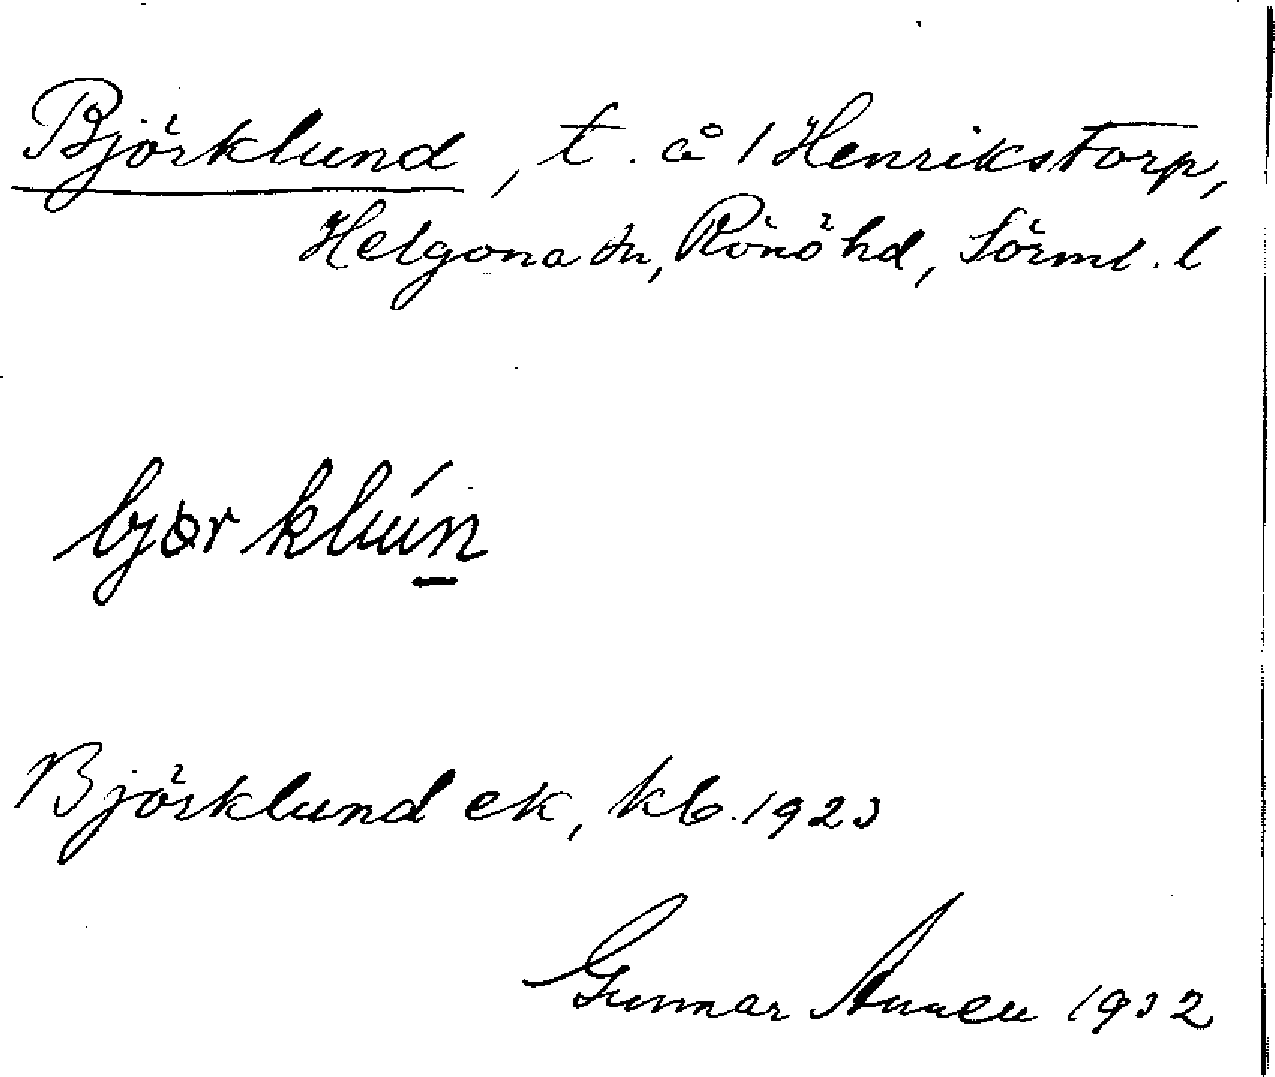 Björklund, t. å 1 Henrikstorp,
Helgona sn, Rönö hd, Sörml. l
bjørklún
Björklund ek, kb. 1923
Gunnar 1932